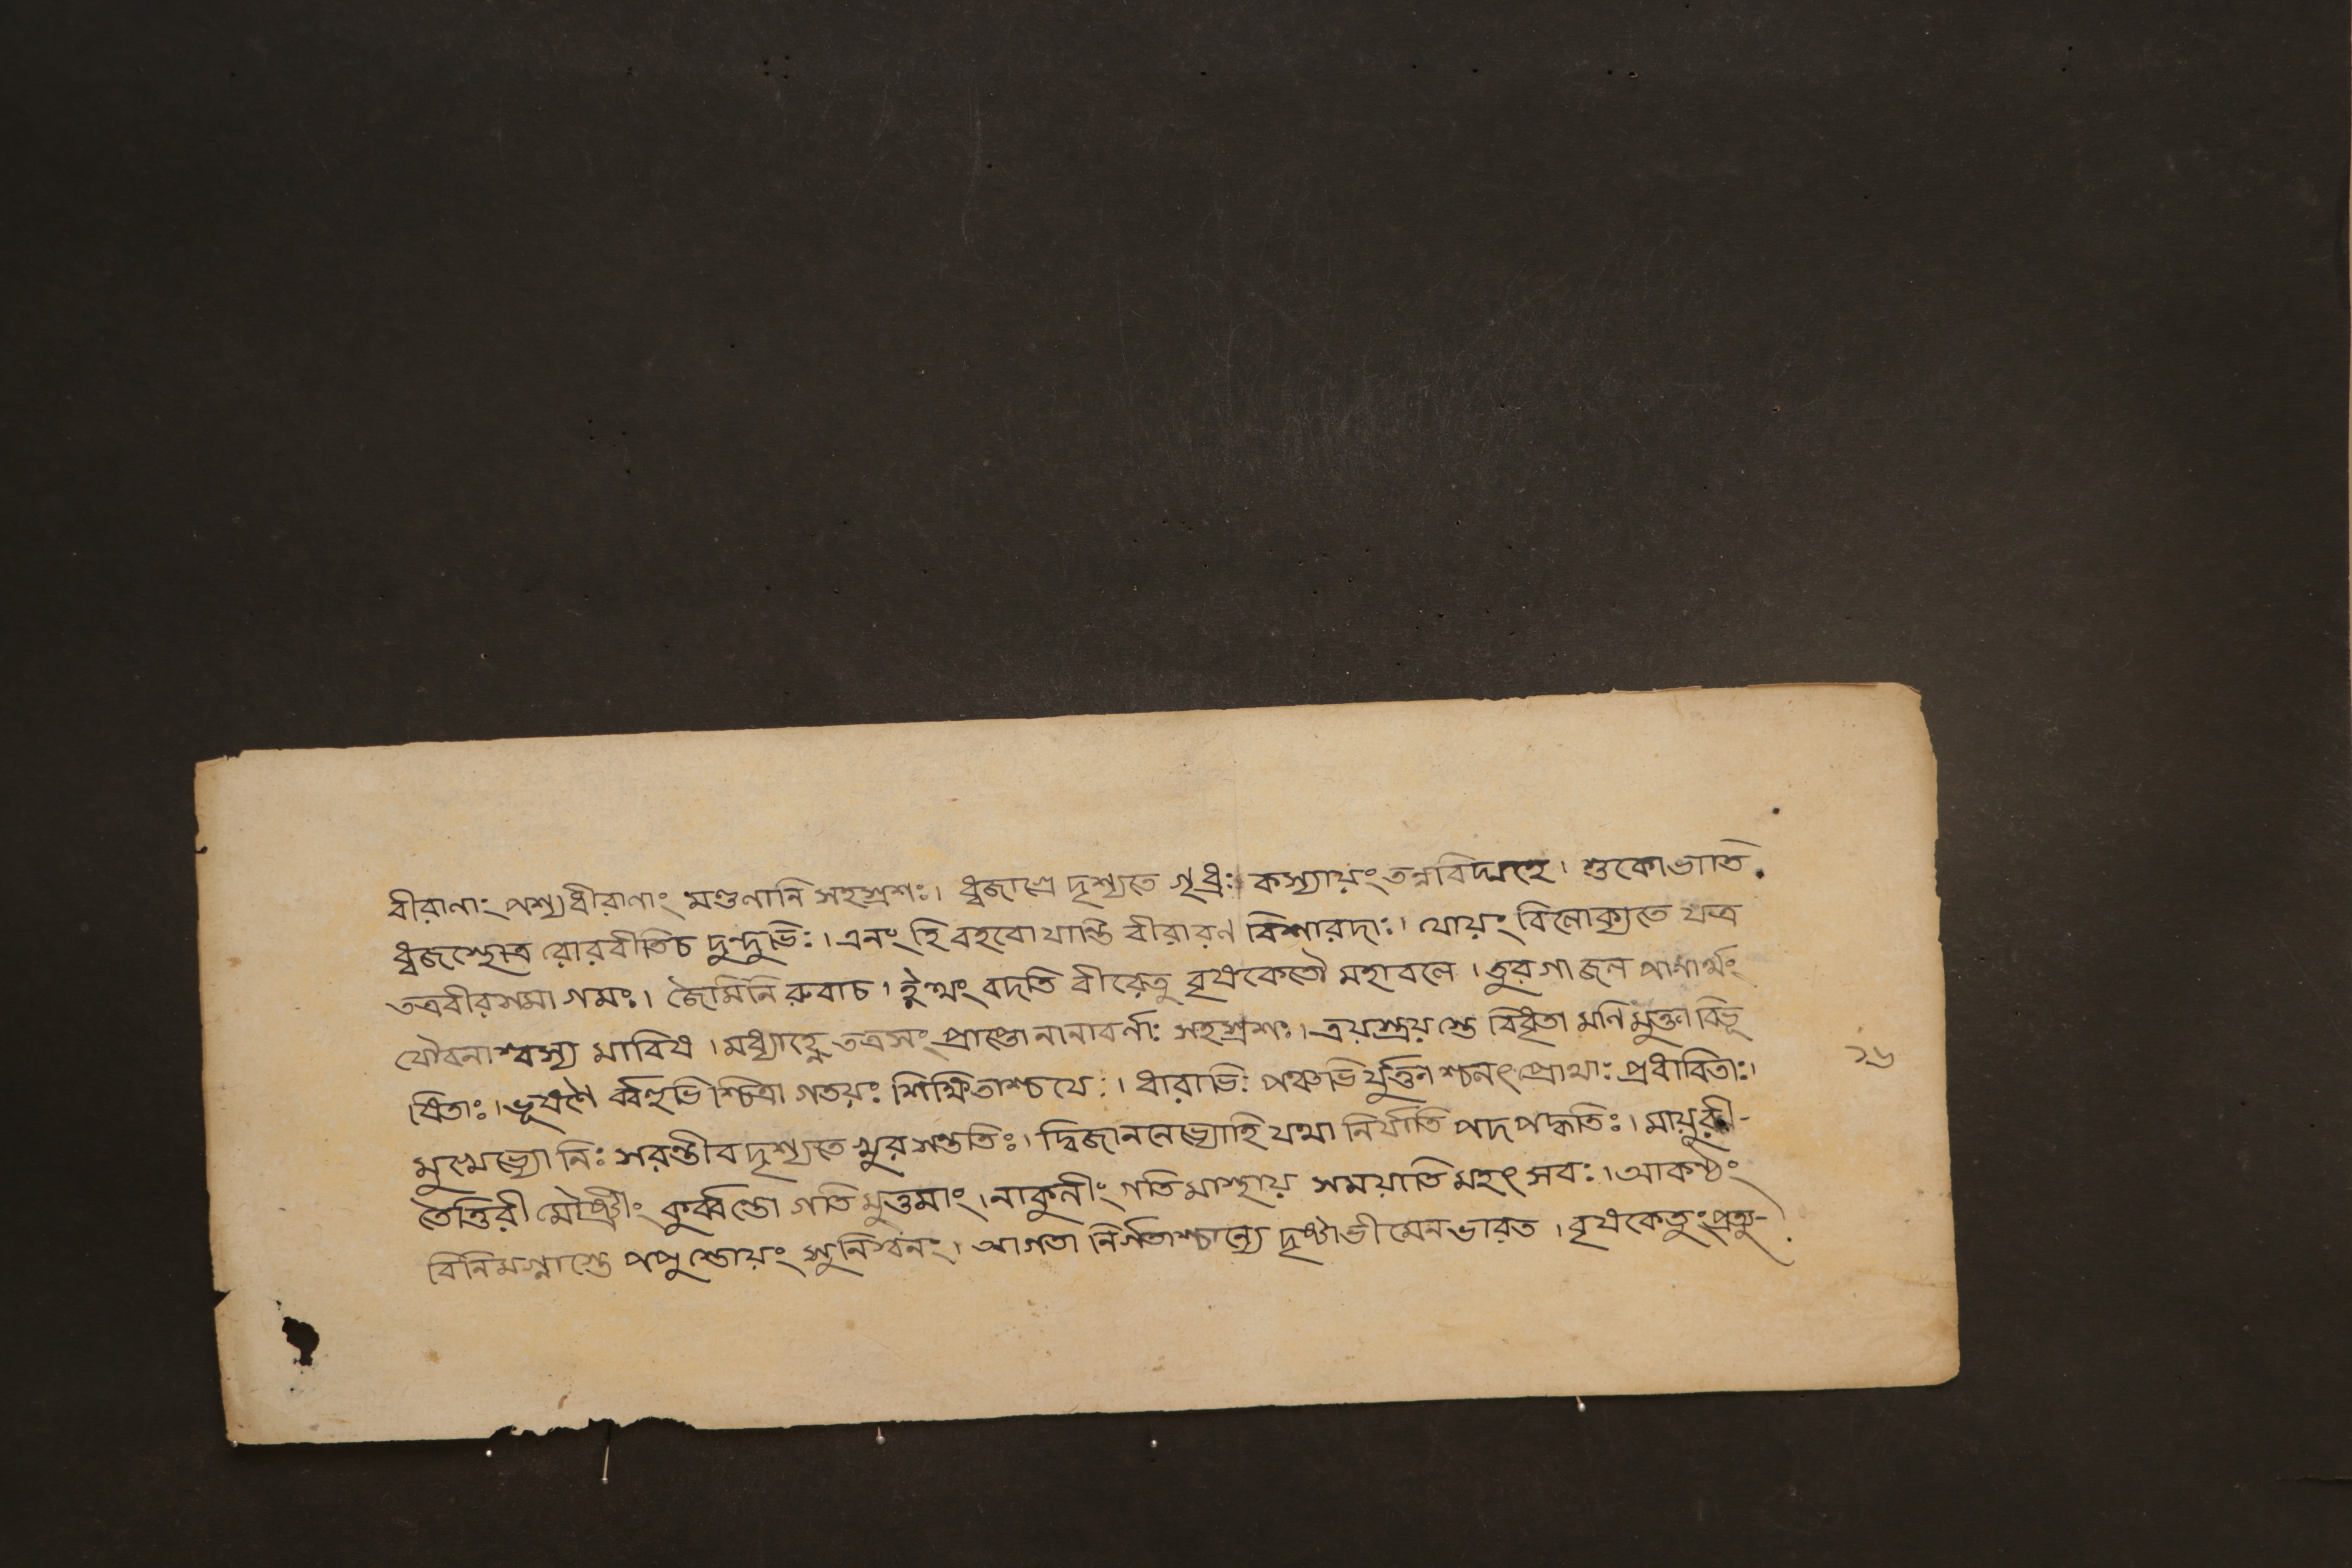 বীরাণাং পশ্য ধীরাণাং মণ্ডণানি সহস্রশঃ। ধ্বজাগ্রে দৃশ্যতে গৃধ্রঃ কস্যায়ং তন্নবিদ্মহে। শুকোভাতি
ধ্বজস্থোত্র রোরবীতিচ দুন্দুভিঃ। এনং হি বহবো যান্তি বীরা রণ বিশারদাঃ। যোয়ং বিলোক্যতে যত্র
তত্রবীরসমা গমঃ। জৈমিনি রুবাচ। ইত্থং বদতি বীরেতু বৃষকেতৌ মহাবলে। তুরগা জল পাণার্থং
যৌবনাশ্বস্য মাবিষ। মধ্যাহ্নে তত্রসং প্রাপ্তো নানাবর্ণাঃ সহস্রশঃ। ত্রয়স্ত্রয়স্তে বিধৃতা মনি মুক্তা বিভূ
ষিতাঃ। ভূষণৈ র্ব্বহুভি শ্চিত্রা গতয়ঃ শিক্ষিতাশ্চ যেঃ। ধারাভিঃ পঞ্চভি র্যুক্তা শ্চলৎ প্রোথাঃ প্রধাবিতাঃ।
মুখেভ্যো নিঃ সরন্তীব দৃশ্যতে খুর সন্ততিঃ। দ্বিজাননেভ্যোহি যথা নির্যাতি পদ পদ্ধতিঃ। মায়ুরী-
তৈত্তিরী কুর্ব্বন্তো গতি মুত্তমাং। নাকুলীং গতি মাস্থায় সময়াতি মহৎ সবঃ। আকণ্ঠং
বিনিমগ্নাস্তে পপু স্তোয়ং সুনিস্বনং। আগতা নির্গতাশ্চান্যে দৃষ্টাভীমেন ভারত। বৃষকেতুং প্রত্যু-
১৬